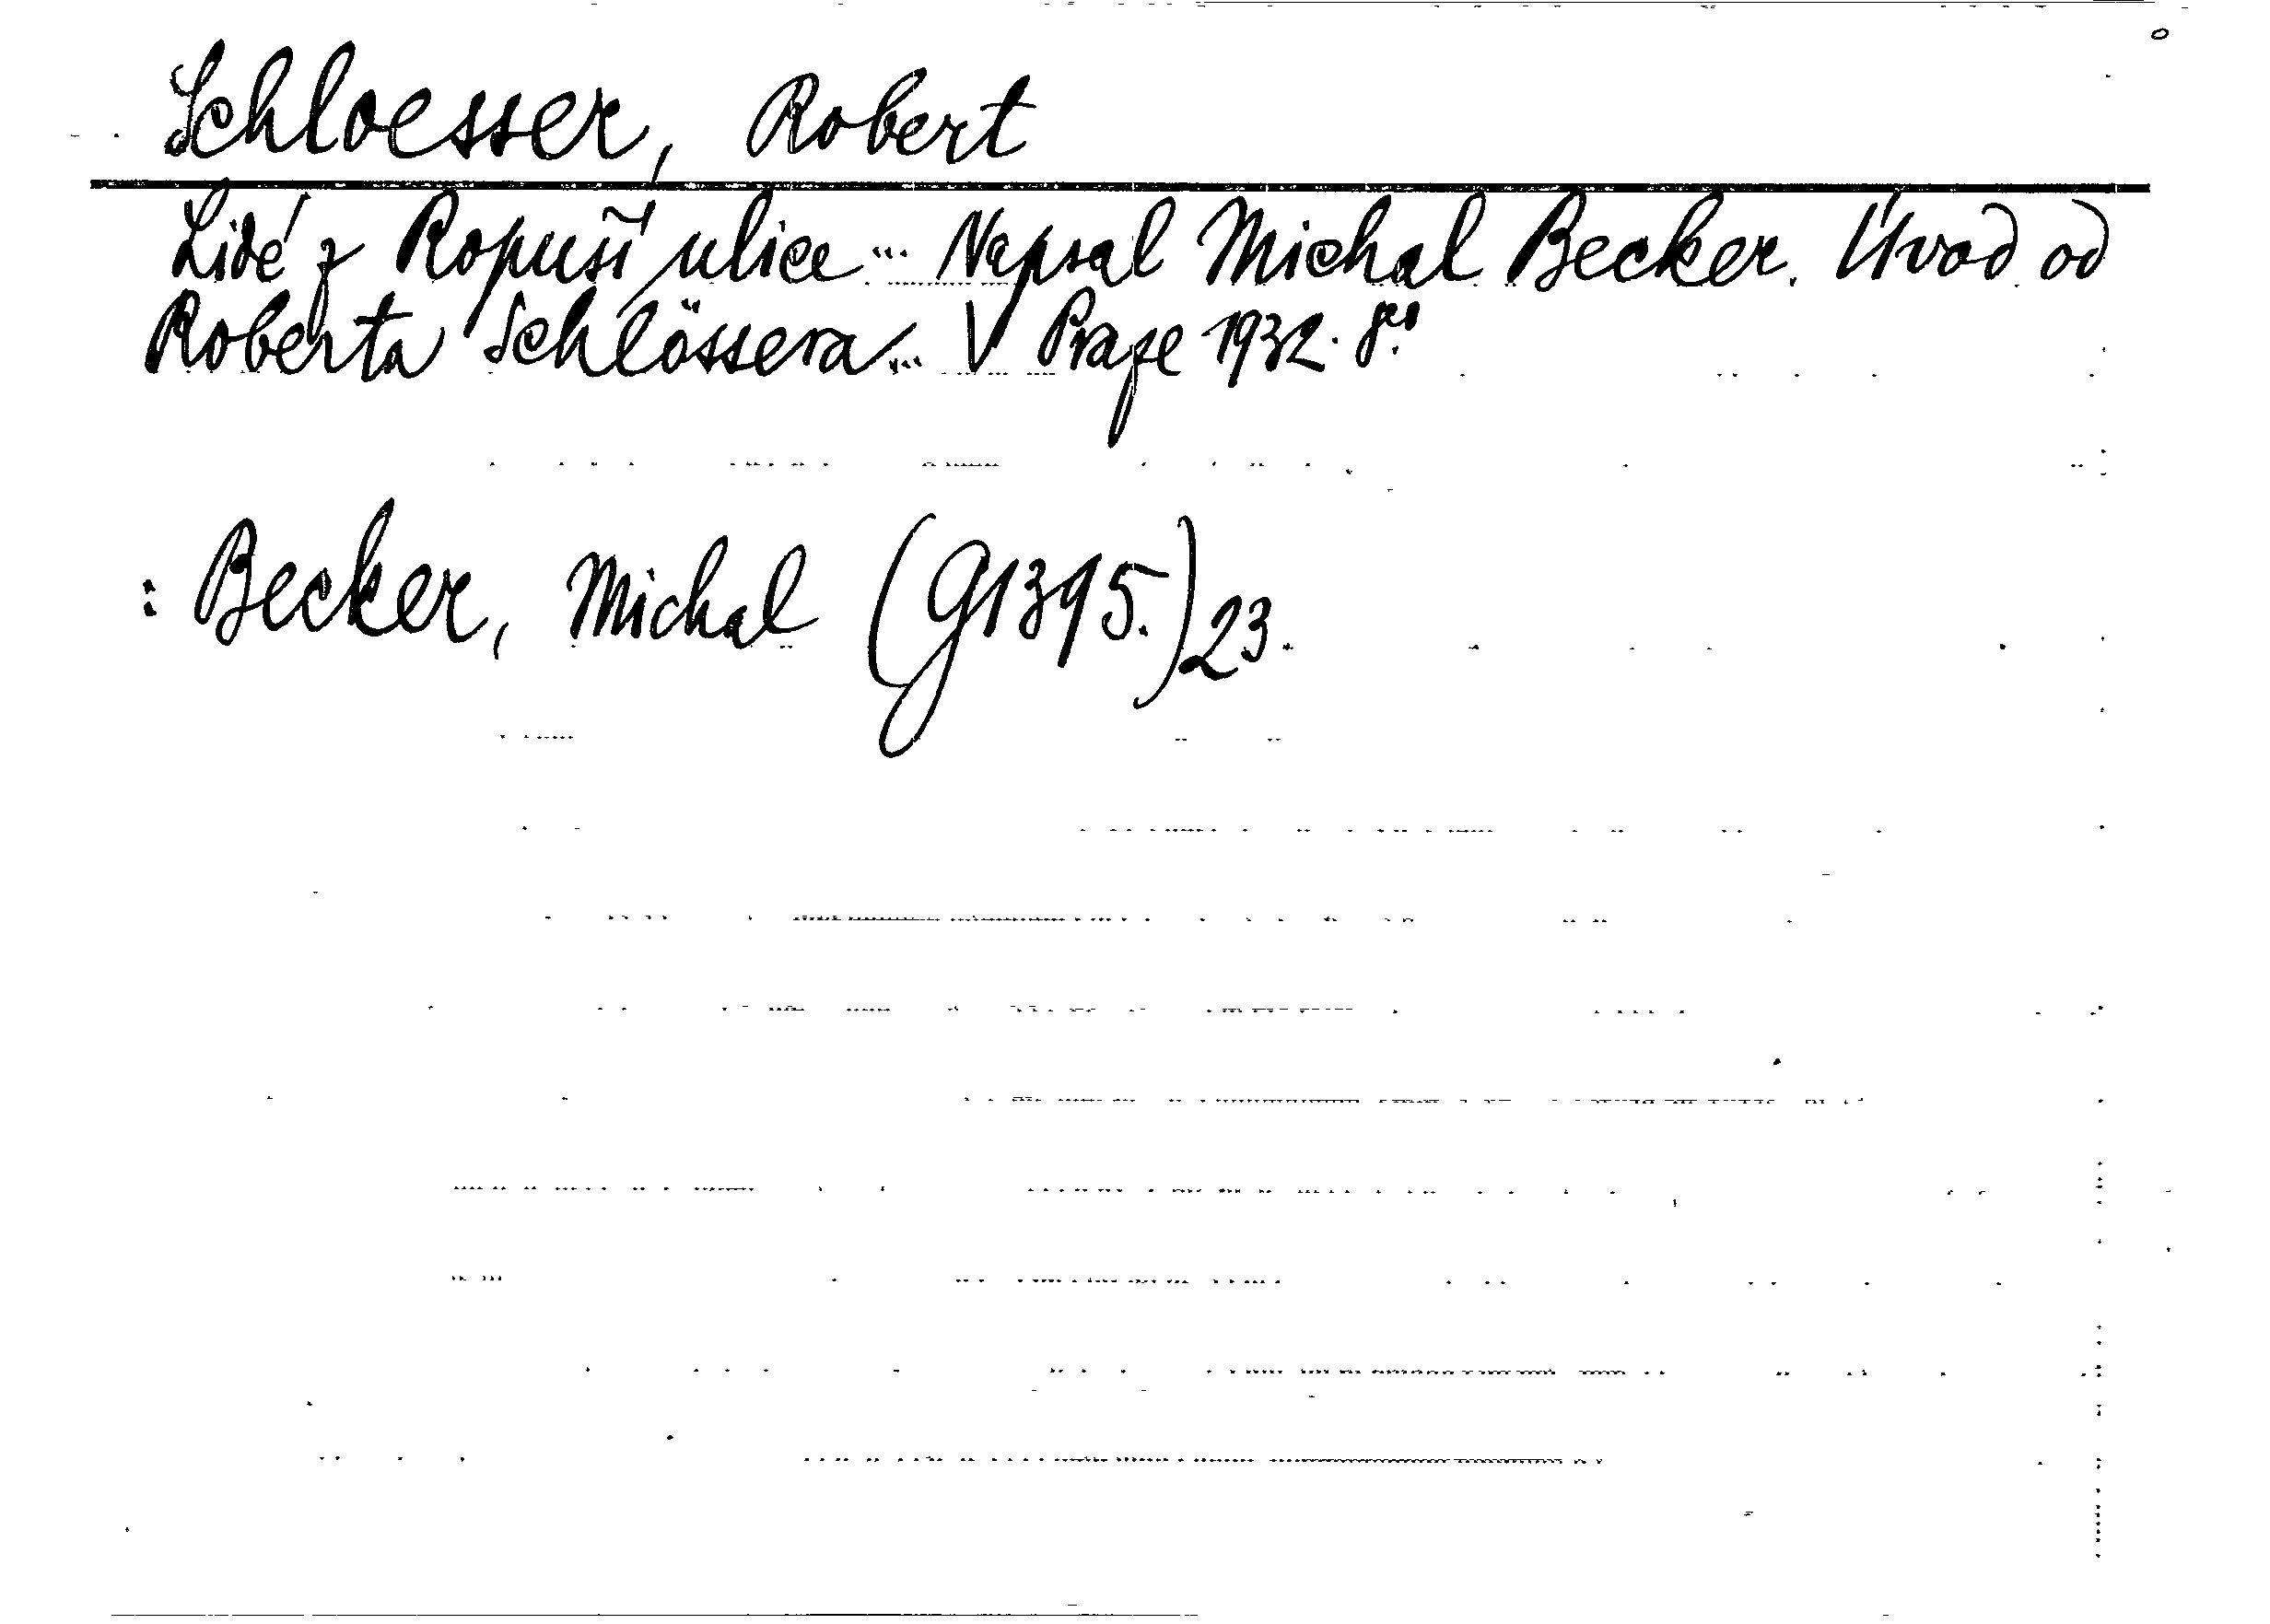 Schloesser, Robert
Lidé z Ropuší ulice... Napsal Michal Becker. Úvod od
Roberta Schlössera... V Praze 1932. 8º.
: Becker, Michal (G1395.)23.